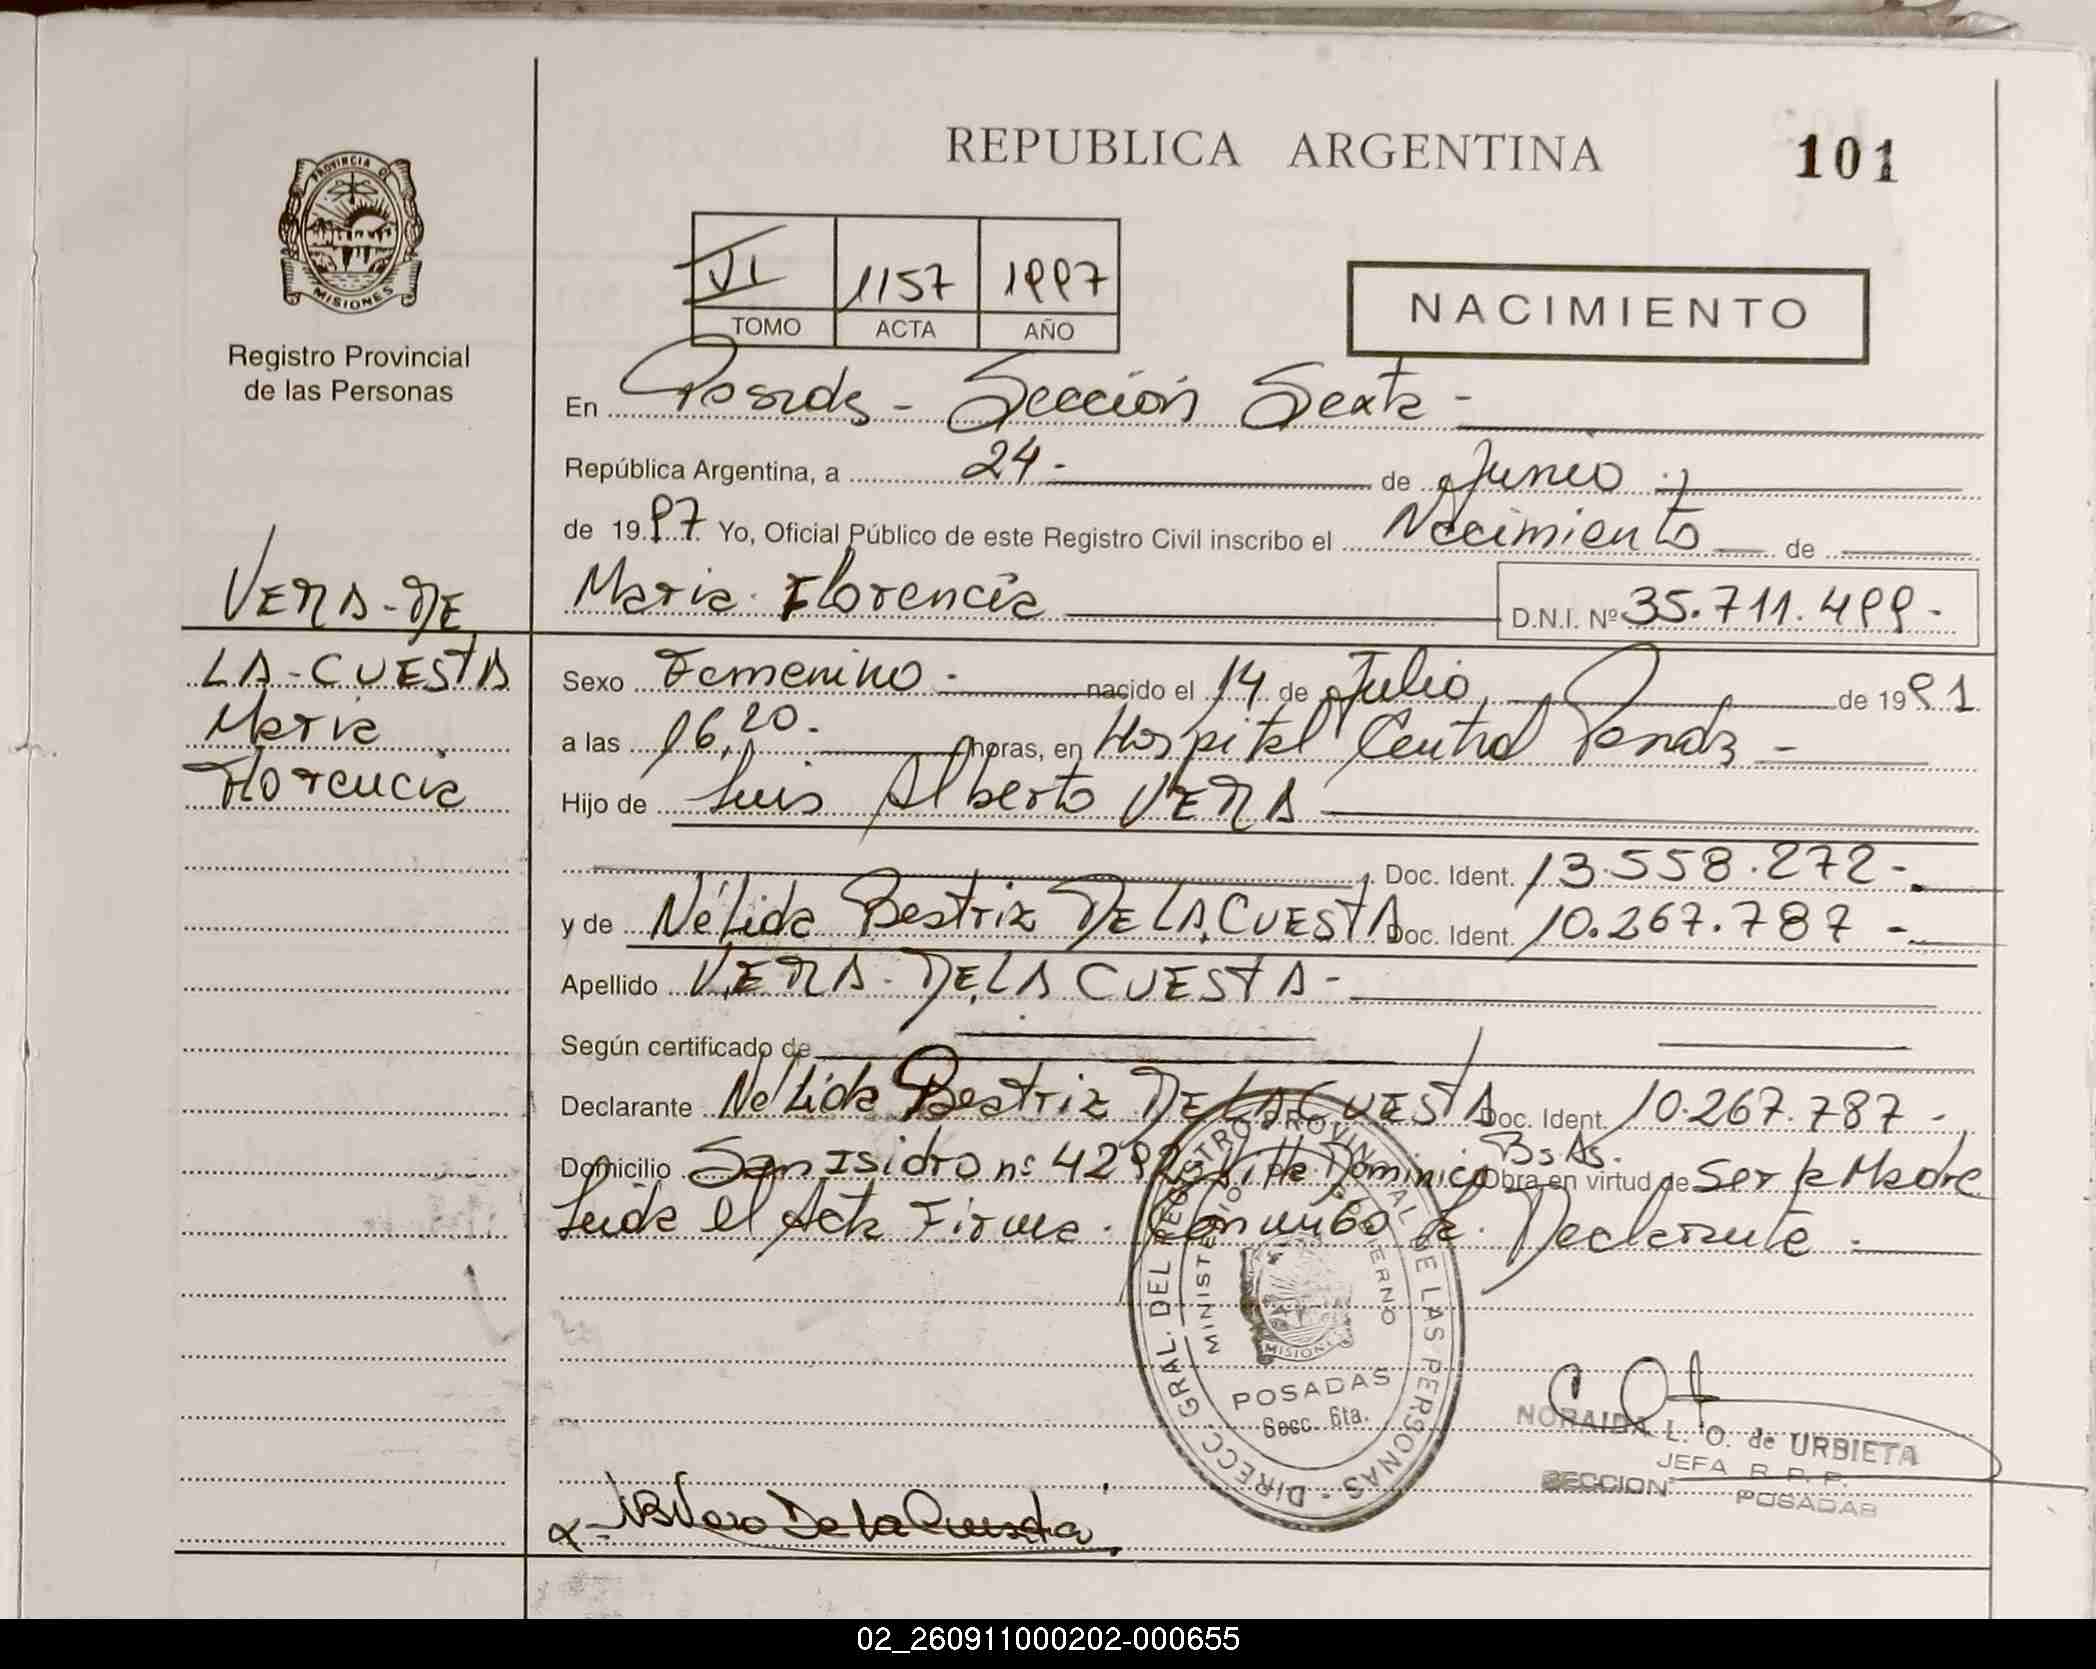 REPUBLICA ARGENTINA
101
PROVINCIA DE
MISIONES
Registro Provincial
de las Personas
VI 1157 1997
TOMO ACTA AÑO
NACIMIENTO
En Posadas - Sección Sexta -
República Argentina, a 24 - de Junio
de 1997 Yo, Oficial Público de este Registro Civil inscribo el Nacimiento de
Maria Florencia D.N.I. Nº 35.711.499 -
VERA - DE
LA - CUESTA
Maria
Florencia
Sexo Femenino - nacido el 14 de Julio de 1991
a las 16,20 - horas, en Hospital Central Posadas -
Hijo de Luis Alberto VERA
Doc. Ident. 13.558.272 -
y de Nélida Beatriz DE LA CUESTA Doc. Ident. 10.267.787 -
Apellido VERA - DE LA CUESTA -
Según certificado de
Declarante Nélida Beatriz DE LA CUESTA Doc. Ident. 10.267.787 -
Domicilio San Isidro nº 4292 Villa Dominico Bs As. Obra en virtud de Ser la Madre
Leida el Acta Firma Conmigo la Declarante
DIRECC. GRAL. DEL REGISTRO PROVINCIAL DE LAS PERSONAS -
MINISTERIO DE GOBIERNO
MISIONES
POSADAS
Secc. 6ta.
NORAIDA L. O. de URBIETA
JEFA R. P. P.
SECCION POSADAS
De la Cuesta
02_260911000202-000655